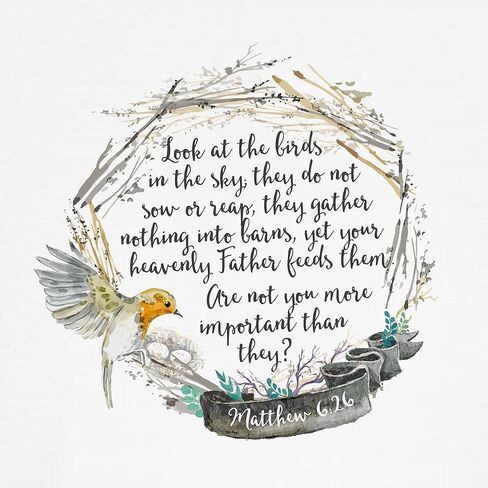 Look at the birds
in the sky, they do not
sow or reap, they gather
nothing into barns, yet your
heavenly Father feeds them
Are not you more
important than
they?
Matthew 6:26